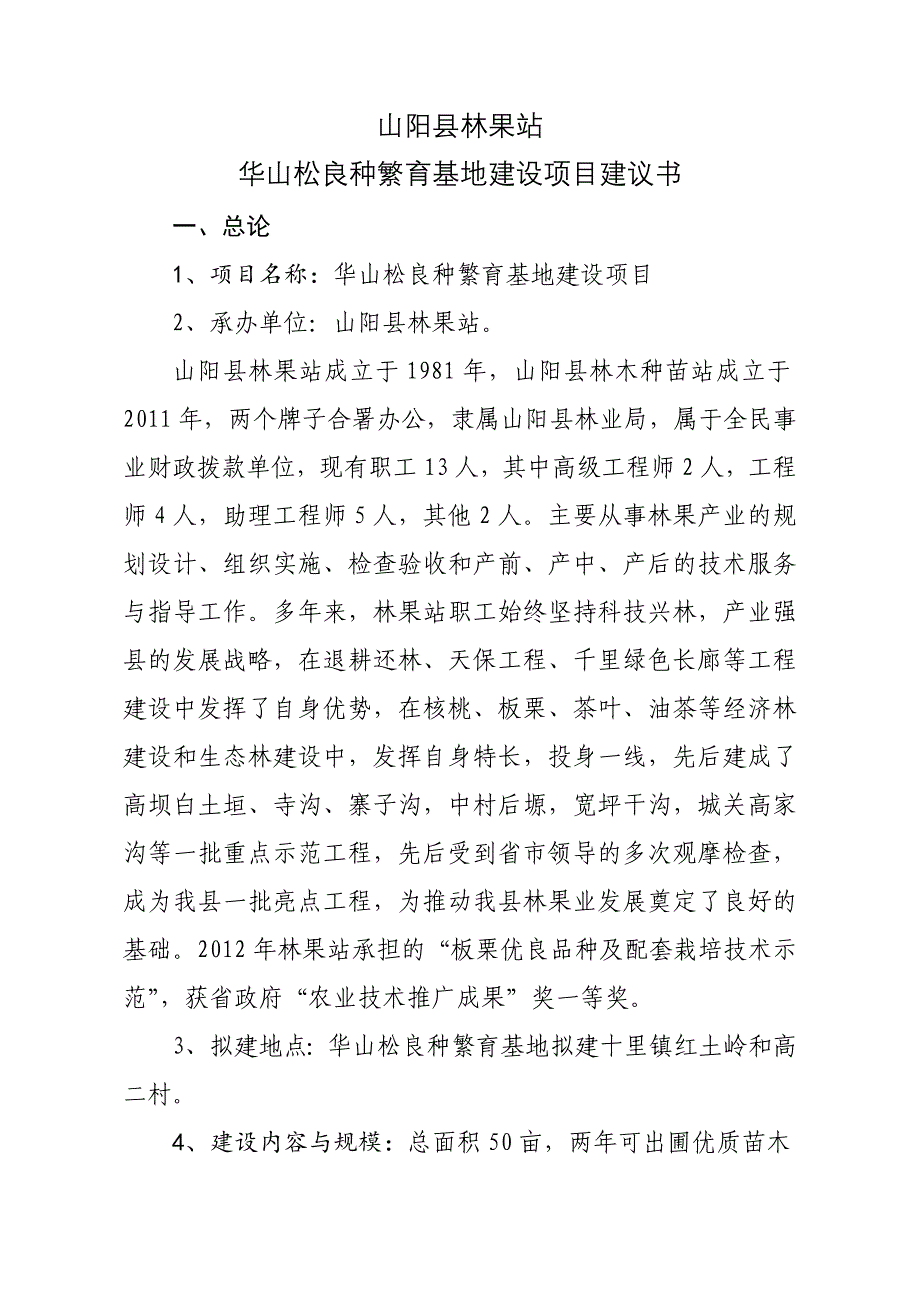 山阳县林果站
华山松良种繁育基地建设项目建议书
一、总论
1、项目名称：华山松良种繁育基地建设项目
2、承办单位：山阳县林果站。
山阳县林果站成立于 1981 年，山阳县林木种苗站成立于
2011 年，两个牌子合署办公，隶属山阳县林业局，属于全民事
业财政拨款单位，现有职工 13 人，其中高级工程师 2 人，工程
师 4 人，助理工程师 5 人，其他 2 人。主要从事林果产业的规
划设计、组织实施、检查验收和产前、产中、产后的技术服务
与指导工作。多年来，林果站职工始终坚持科技兴林，产业强
县的发展战略，在退耕还林、天保工程、千里绿色长廊等工程
建设中发挥了自身优势，在核桃、板栗、茶叶、油茶等经济林
建设和生态林建设中，发挥自身特长，投身一线，先后建成了
高坝白土垣、寺沟、寨子沟，中村后塬，宽坪干沟，城关高家
沟等一批重点示范工程，先后受到省市领导的多次观摩检查，
成为我县一批亮点工程，为推动我县林果业发展奠定了良好的
基础。2012 年林果站承担的“板栗优良品种及配套栽培技术示
范”，获省政府“农业技术推广成果”奖一等奖。
3、拟建地点：华山松良种繁育基地拟建十里镇红土岭和高
二村。
4、建设内容与规模：总面积 50 亩，两年可出圃优质苗木